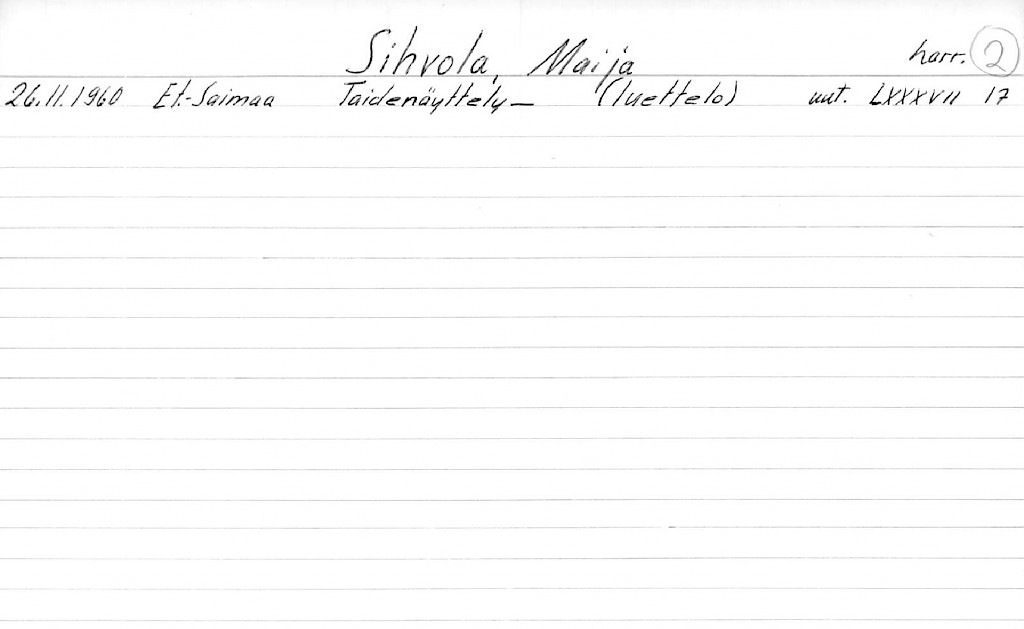 Sihvola, Maija harr. 2
26.11.1960 Et.-Saimaa Taidenäyttely — (luettelo) uut. LXXXVII 17